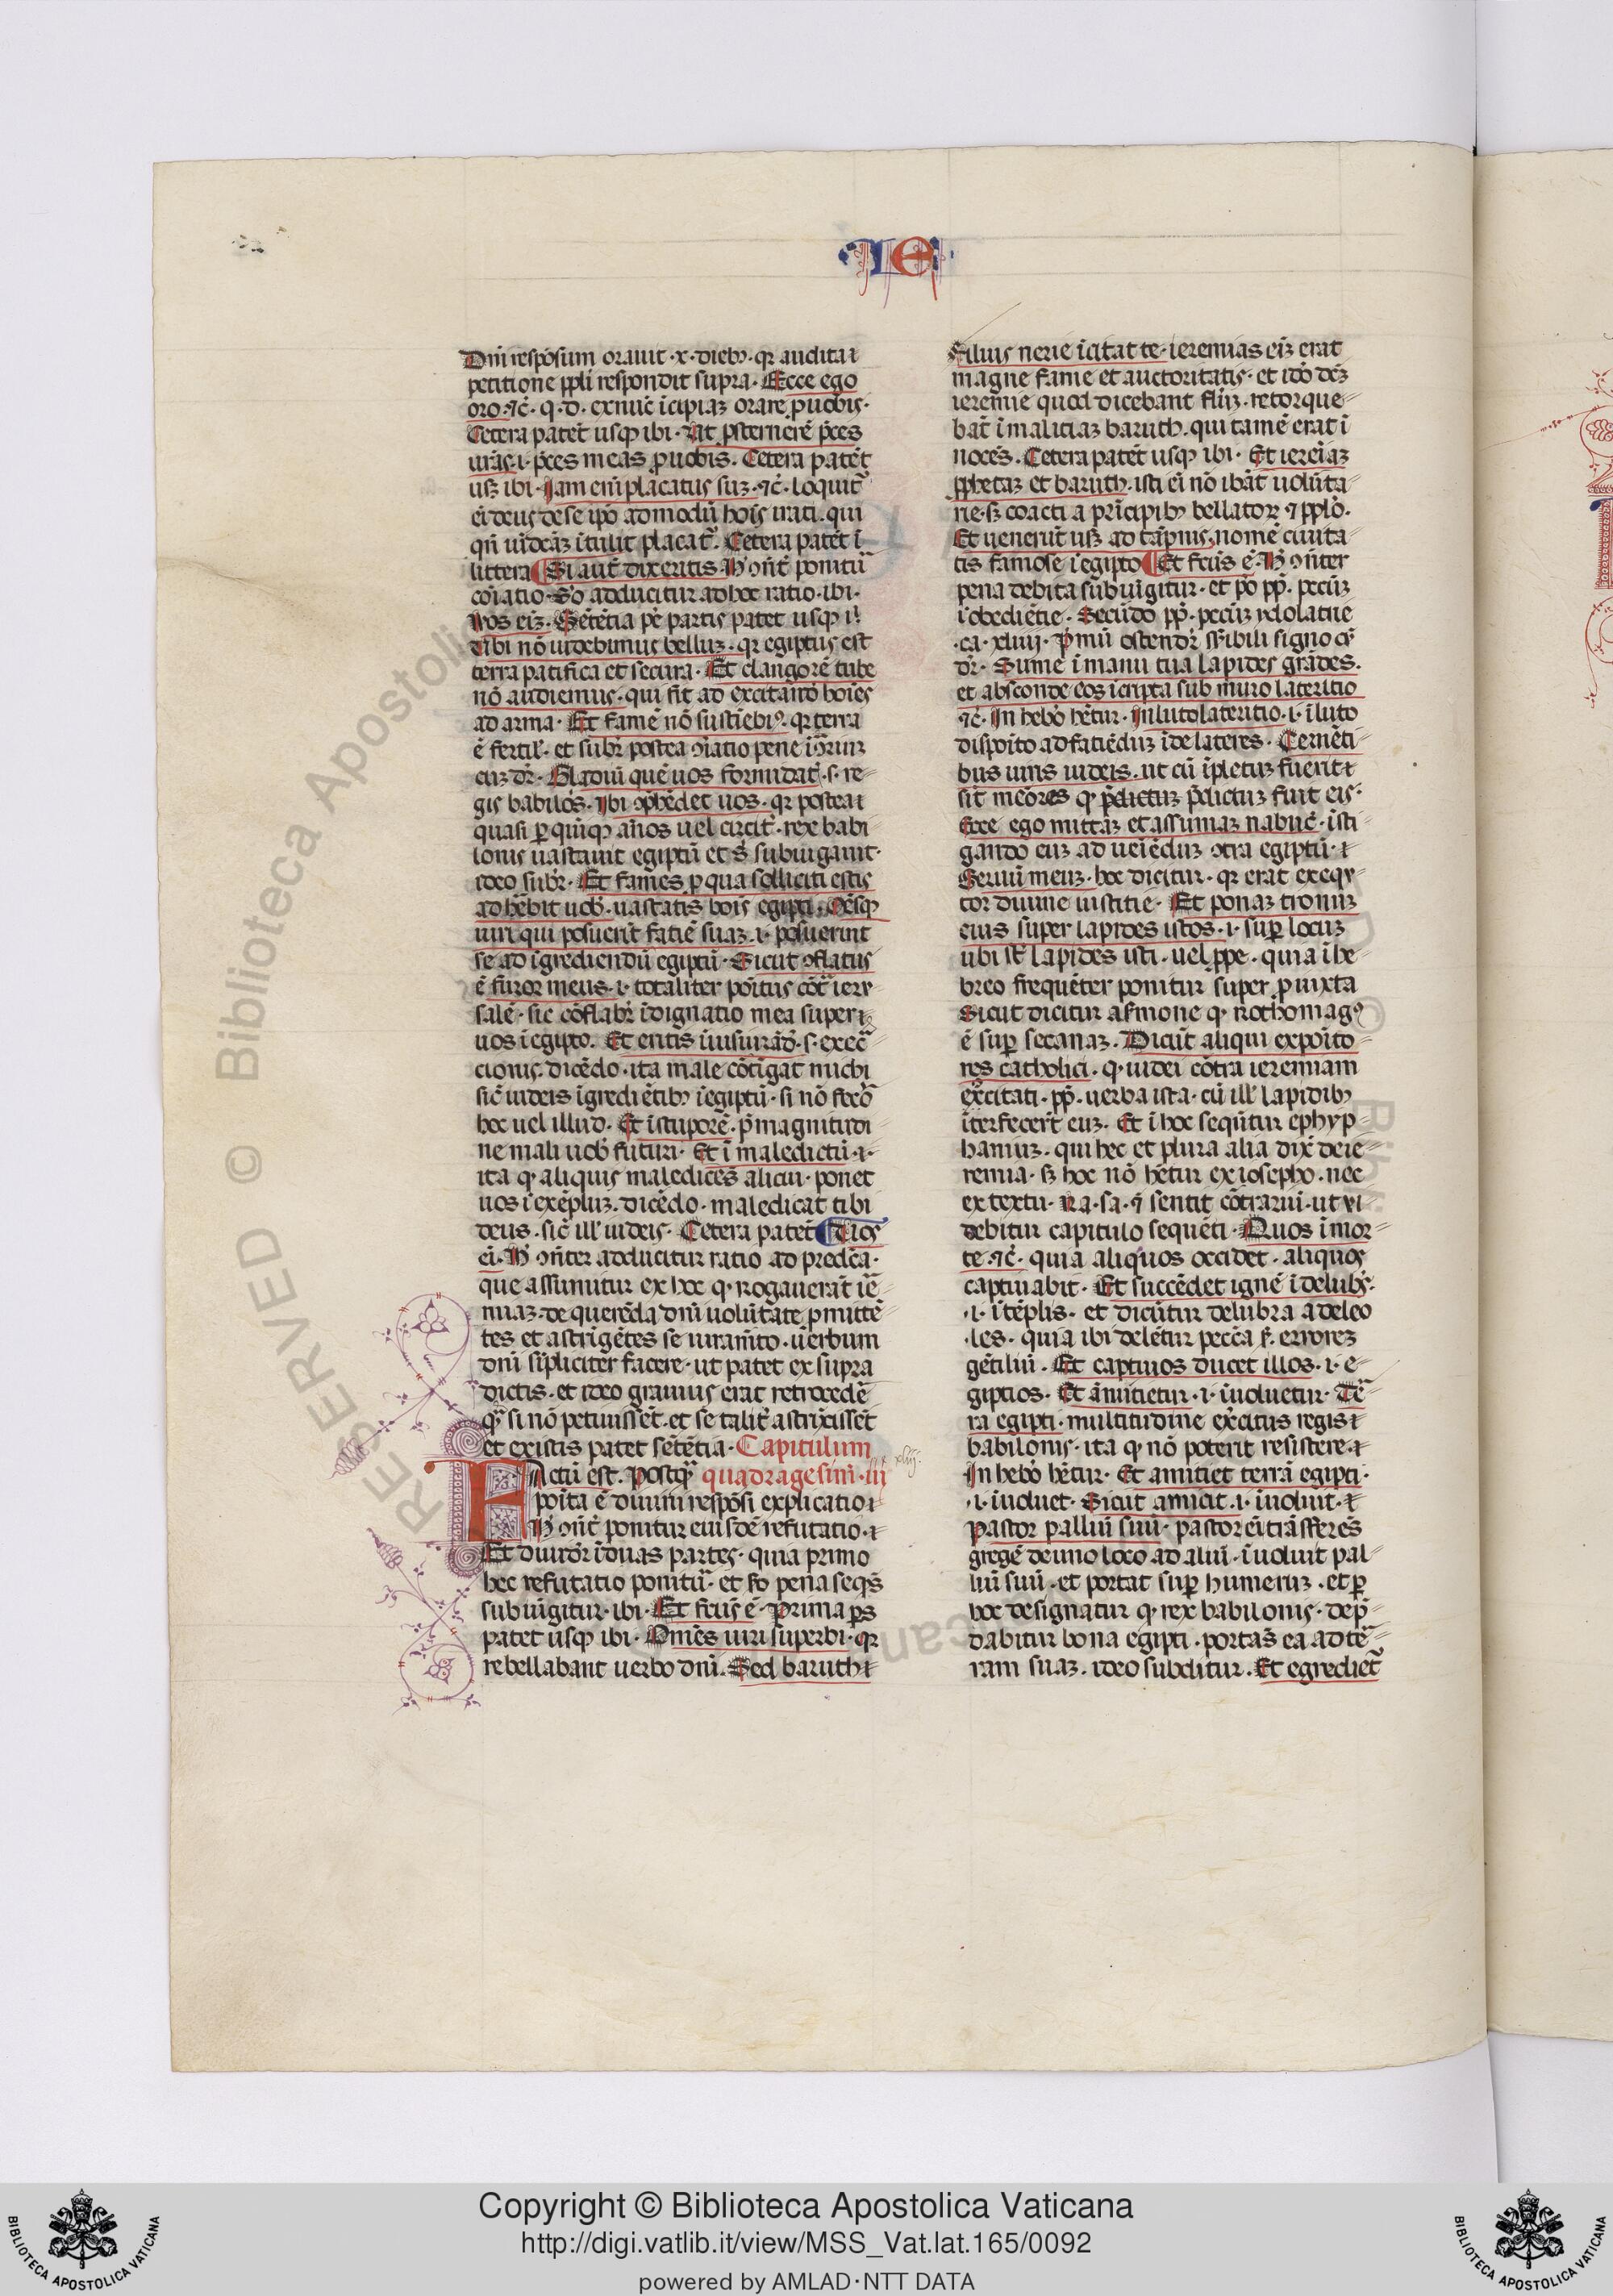 IE
Dn̄i respōsum orauit ·x· diebꝰ· qꝛ audita
petitione ppłi respondit supra· Ecce ego
oro· ⁊c̄· q·d· ex nūc īcipiaꝫ orare ꝓ uobis·
Cetera patēt usqꝫ ibi· Ut ꝓsternerē p̄ces
ur̄as· i· p̄ces meas ꝓ uobis· Cetera patēt
usqꝫ ibi· Iam eni placatus suꝫ· ⁊c̄· loquit̄
ei deus de se ipō ad modū hoīs irati· qui
qn̄ uīdcāꝫ ītulit placat̄· Cetera patēt ī
littera ¶ Si aut̄ dixeritis· H̄ ꝯn̄t̄ ponitu᷑
cōiatio· S̄o adducitur ad hoc ratio· ibi·
Uos eī· Sētētia pe partis patet usqꝫ i·
Ubi nō uidebimus belluꝫ· qꝛ egiptus est
terra pacifica et secura· Et clangorē tube
nō audiemus· qui fit ad excitandū hoīes
ad arma· Et famē nō sustīebiꝰ· qꝛ terra
ē fertił· et subꝛ̄ postea
eiuꝫ dꝛ̄· Gladiū quē uos formidat̄· s· re-
gis babiloīs· Ibi ꝯp̄hēdet uos· qꝛ postea
quasi ꝑ quīqꝫ ān̄os uel circit̄· rex babi
lonis uastauit egiptū et s̄ subiugauit·
ideo subꝛ̄· Et fames ꝓ qua solliciti estis
adhēbit uob̄· uastatis boīs egipti· Oēsqꝫ
uiri qui posuerīt faciē suaꝫ· i· posuerint
se ad īgrediendū egiptū· Sicut ꝯflatus
ē furor meus· i· totaliter poītus cōt̄ ieru
salē· sic cōflabꝛ̄ īdignatio mea super
uos ī egipto· Et eritis ī iusiurād̄· s· exec̄
cionis· dicēdo· ita male cōtīgat michi
sic̄ iudeis īgrediētibꝰ ī egiptū· si nō fecō
hoc uel illud· Et ī stuporē· p̄ magnitudi
ne mali uob̄ futuri· Et ī maledictū· i·
ita qꝫ aliquis maledicēs alicui· ponet
uos ī exēpluꝫ· dicēdo· maledicat tibi
deus· sic̄ ill̄ iudeis· Cetera patēt ¶ Uos
ei· H̄ ꝯn̄ter adducitur ratio ad predc̄a·
que assumitur ex hoc qꝫ rogauerāt ie-
miaꝫ· de querēda dn̄i uolūtate ꝓmittē-
tes et astrigētes se iuramēto· uerbum
dn̄i sīpliciter facere· ut patet ex supra
dictis· et ideo grauius erat retrocedē
qᷓ si nō petiuissēt· et se talit̄ astrixissēt
et ex istis patet sētētia· Capitulum
Factū est· Postqᷓ quadragesim̄· iii xliij·
poīta ē diuini respōsi explicatio
H̄ ꝯn̄t̄ ponitur eiusdē refutatio·
Et diuidꝛ̄ ī duas partes· quia primo
hec refutatio ponitu᷑· et s̄o pena seqēs
subuīgitur· ibi· Et fctūs ē· Prima ꝑs
patet usqꝫ ibi· Omēs uiri superbi· qꝛ
rebellabant uerbo dn̄i· Sed baruch
filius nerie īcitat te· ieremias eiꝫ erat
magne fame et auctoritatis· et idō dc̄ꝫ
ieremie quod dicebant flīꝫ· retorque-
bāt ī maliciaꝫ baruch· qui tamē erat ī
nocēs· Cetera patēt usqꝫ ibi· Et iereīaꝫ
ꝓphetaꝫ et baruch· isti ei nō ibāt uolūta-
rie· sꝫ coacti a prīcipibꝰ bellatoꝝ ⁊ ppłō·
Et uenerūt usqꝫ ad tāpnis· nomē ciuita-
tis famose ī egipto ¶ Et fctūs ē· H̄ ꝯn̄ter
pena debita subuīgitur· et p̄o pp̄· pecūꝫ
īobediētie· Secūdo pp̄· pecūꝫ ydolatrie
·ca· xliiij· P̄mū ostendꝛ̄ s̄sibili signo cū
dꝛ̄· Sume ī manu tua lapides grādes·
et absconde eos ī cripta sub muro lateritio
⁊c̄· In hebō hētur· In luto lateritio· i· ī luto
dispoīto ad faciēduꝫ īde lateres· Cernēti-
bus uiris iudeis· ut cū īpletuꝫ fuerit
sit meōres qꝫ p̄dictuꝫ p̄dictuꝫ fuit eis·
Ecce ego mittaꝫ et assumaꝫ nabuc̄· īsti-
gando eiuꝫ ad ueiēduꝫ ꝯtra egiptū·
Seruū meuꝫ· hoc dicitur· qꝛ erat exequ-
tor diuine iustitie· Et ponaꝫ tronuꝫ
eius super lapides istos· i· suꝑ locuꝫ
ubi st̄ lapides isti· uel ꝓpe· quia ī he-
breo frequēter ponitur super ꝓ iuxta
Sicut dicitur a sermone qꝫ rothomagꝰ
ē suꝑ secanaꝫ· Dicūt aliqui expoīto-
res catholici· qꝫ iudei cōtra ieremiam
ex̄citati· pp̄· uerba ista· cū ill̄ lapidibꝰ
īterfecerīt eū· Et ī hoc sequītur ephyp-
haniuꝫ· qui hec et plura alia dix̄ de ie-
remia· sꝫ hoc nō hētur ex iosepho· nec
ex textu· Ra· sa· ⁊ sentit cōtrariū· ut vi
debitur capitulo sequēti· Quos ī mor-
te· ⁊c̄· quia aliquos occidet· aliquos
captiuabit· Et succēdet ignē ī delubꝛ̄·
·i· ī tēplis· et dicūtur delubra a deleo
·les· quia ibi delētur pecc̄a s̄· errores
gētiliū· Et captiuos ducet illos· i· e-
giptios· Et āmicietur· i· īuoluetur· Te᷑-
ra egipti· multitudine ex̄citus regis
babilonis· ita qꝫ nō poterit resistere
In hebō hētur· Et amiciet terrā egipti·
·i· īuoluet· Sicut amicit· i· īuoluit·
Pastor palliū suū· pastor ei trāsferēs
gregē de uno loco ad aliū· īuoluit pal-
liū suū· et portat suꝑ humeruꝫ· et ꝑ
hoc designatur qꝫ rex babilonis· dep̄-
dabitur bona egipti· portās ea ad te᷑-
ram suaꝫ· ideo subditur· Et egrediet̄
Copyright © Biblioteca Apostolica Vaticana
http://digi.vatlib.it/view/MSS_Vat.lat.165/0092
powered by AMLAD·NTT DATA